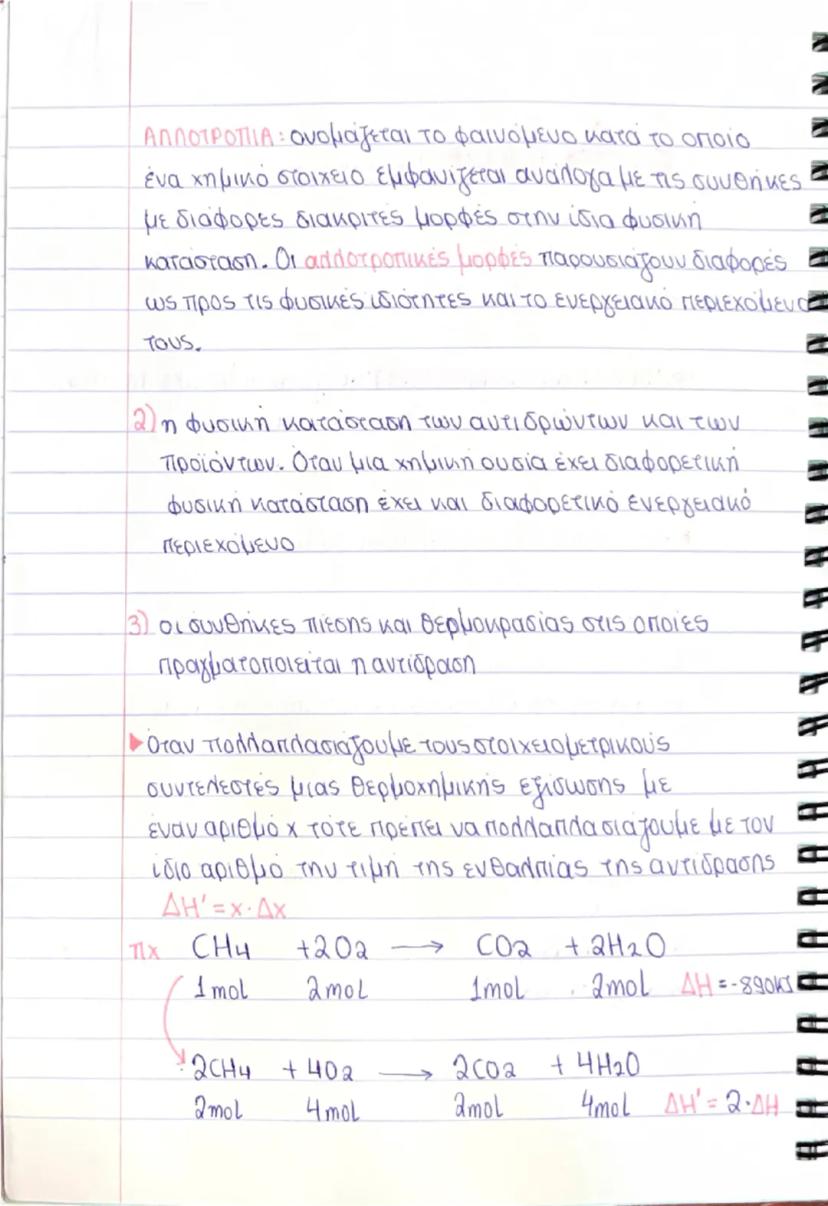 ΑΛΛΟΤΡΟΠΙΑ: ονομάζεται το φαινόμενο κατά το οποίο
ένα χημικό στοιχείο εμφανίζεται ανάλογα με τις συνθήκες
με διάφορες διακριτές μορφές στην ίδια φυσική
κατάσταση. Οι αλλοτροπικές μορφές παρουσιάζουν διαφορές
ως προς τις φυσικές ιδιότητες και το ενεργειακό περιεχόμενο
τους.
2) η φυσική κατάσταση των αντιδρώντων και των
προϊόντων. Όταν μια χημική ουσία έχει διαφορετική
φυσική κατάσταση έχει και διαφορετικό ενεργειακό
περιεχόμενο
3) οι συνθήκες πίεσης και θερμοκρασίας στις οποίες
πραγματοποιείται η αντίδραση
▶ Όταν πολλαπλασιάζουμε τους στοιχειομετρικούς
συντελεστές μιας θερμοχημικής εξίσωσης με
έναν αριθμό x τότε πρέπει να πολλαπλασιάζουμε με τον
ίδιο αριθμό την τιμή της ενθαλπίας της αντίδρασης
ΔΗ' = x · Δx
πχ CH4 + 2O2 → CO2 + 2H2O
1mol 2mol 1mol 2mol ΔΗ = -890kJ
2CH4 + 4O2 → 2CO2 + 4H2O
2mol 4mol 2mol 4mol ΔΗ' = 2 · ΔΗ